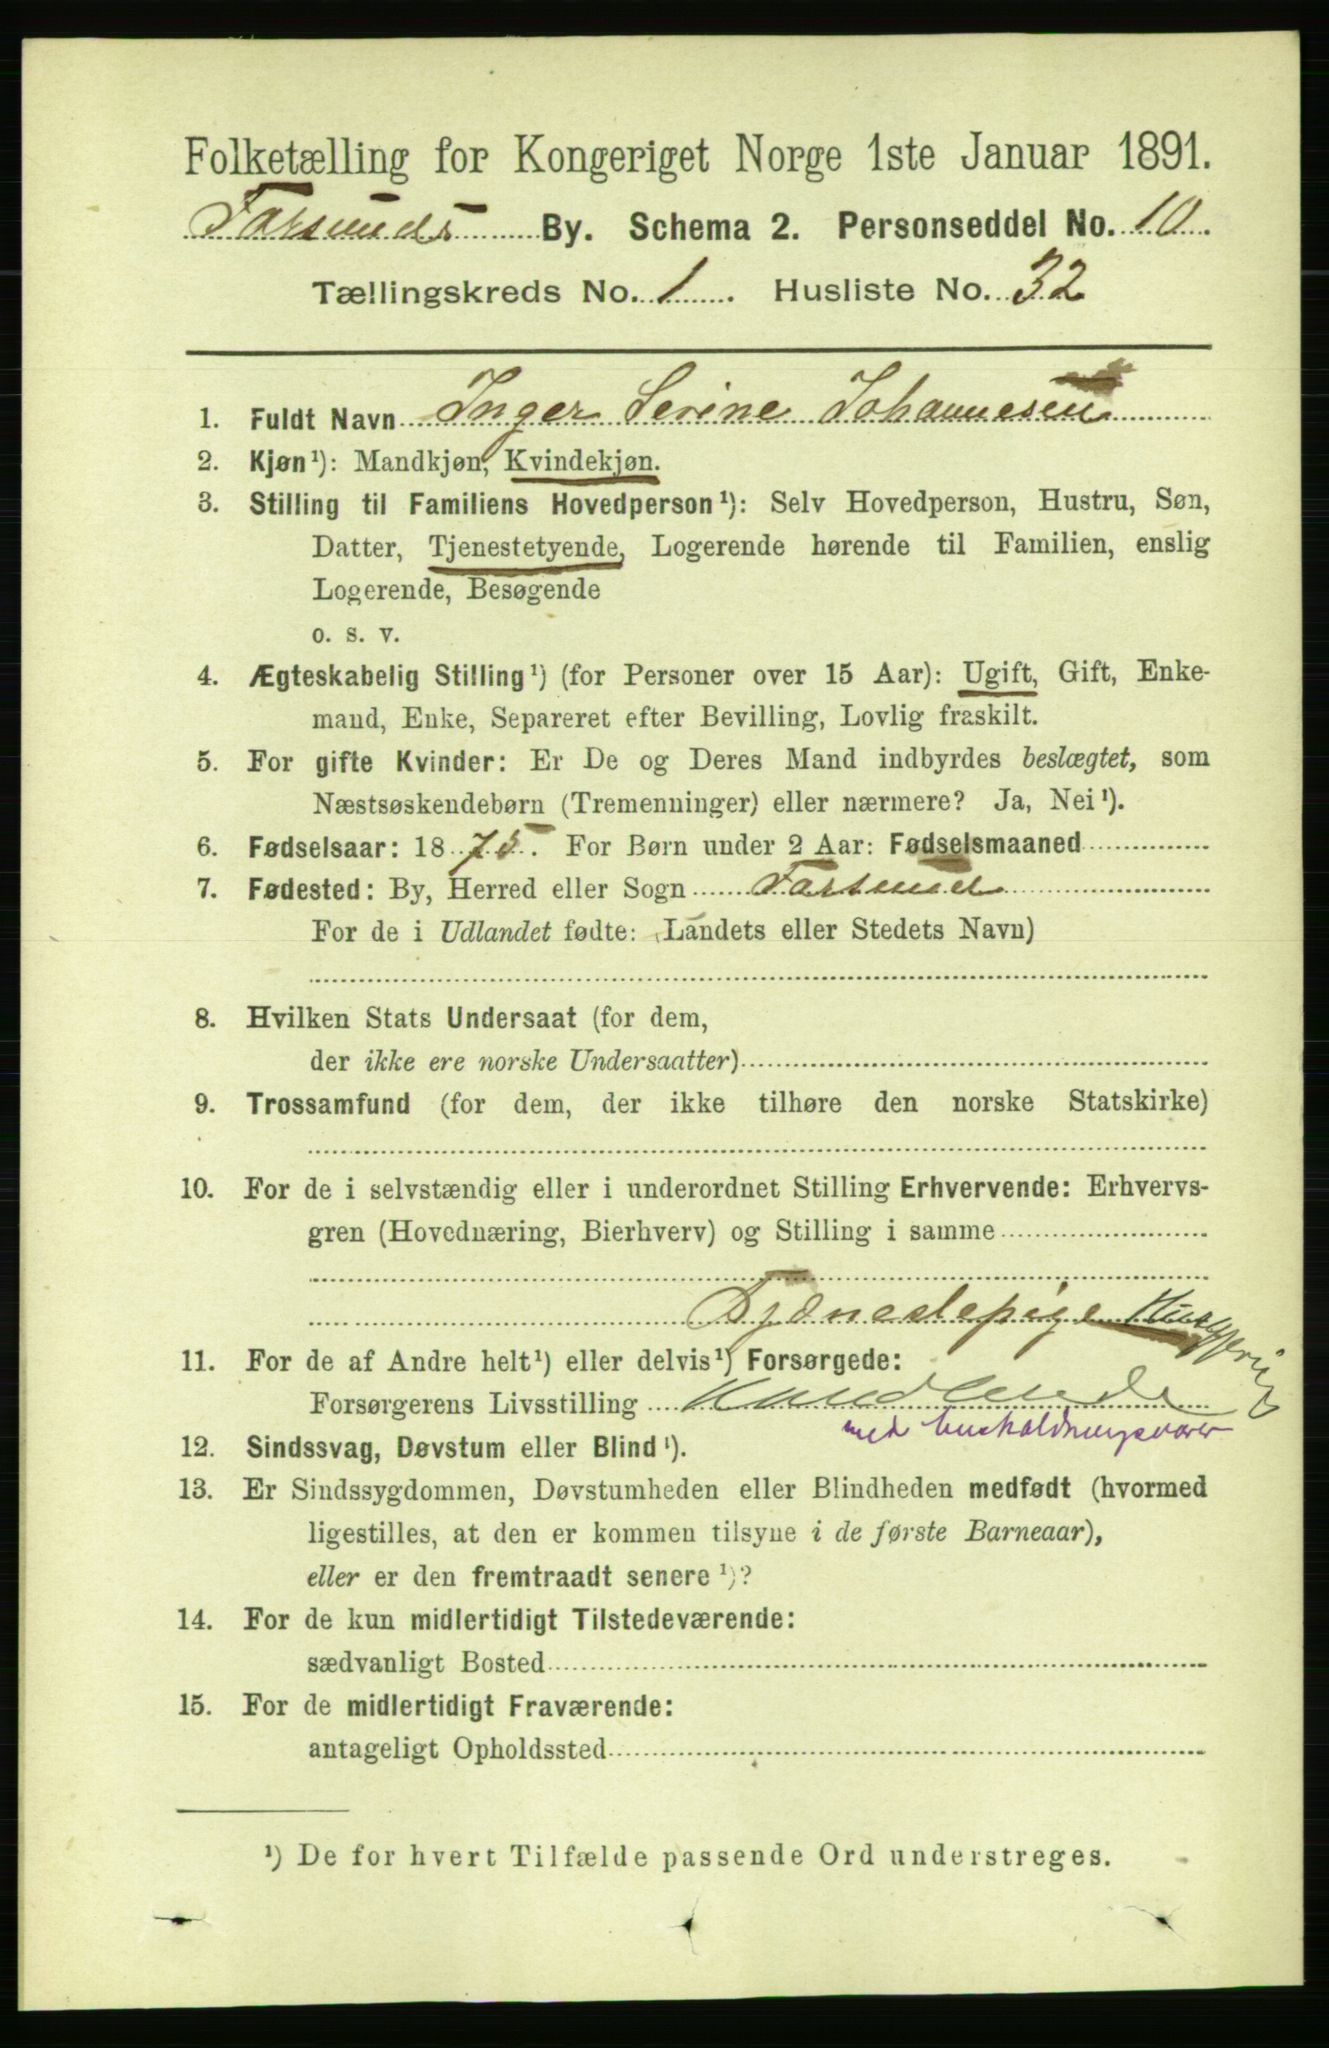 Folketælling for Kongeriget Norge 1ste Januar 1891.
Farsunds By. Schema 2. Personseddel No. 10.
Tællingskreds No. 1. Husliste No. 32
1. Fuldt Navn Inger Serine Johannesen
2. Kjøn¹): Mandkjøn, Kvindekjøn.
3. Stilling til Familiens Hovedperson¹): Selv Hovedperson, Hustru, Søn,
Datter, Tjenestetyende, Logerende hørende til Familien, enslig
Logerende, Besøgende
o. s. v.
4. Ægteskabelig Stilling¹) (for Personer over 15 Aar): Ugift, Gift, Enke-
mand, Enke, Separeret efter Bevilling, Lovlig fraskilt.
5. For gifte Kvinder: Er De og Deres Mand indbyrdes beslægtet, som
Næstsøskendebørn (Tremenninger) eller nærmere? Ja, Nei¹).
6. Fødselsaar: 1875. For Børn under 2 Aar: Fødselsmaaned
7. Fødested: By, Herred eller Sogn Farsund
For de i Udlandet fødte: Landets eller Stedets Navn)
8. Hvilken Stats Undersaat (for dem,
der ikke ere norske Undersaatter)
9. Trossamfund (for dem, der ikke tilhøre den norske Statskirke)
10. For de i selvstændig eller i underordnet Stilling Erhvervende: Erhvervs-
gren (Hovednæring, Bierhverv) og Stilling i samme
Tjenestepige Husgjerning
11. For de af Andre helt¹) eller delvis¹) Forsørgede:
Forsørgerens Livsstilling Handlende
med husholdningsvarer
12. Sindssvag, Døvstum eller Blind¹).
13. Er Sindssygdommen, Døvstumheden eller Blindheden medfødt (hvormed
ligestilles, at den er kommen tilsyne i de første Barneaar),
eller er den fremtraadt senere¹)?
14. For de kun midlertidigt Tilstedeværende:
sædvanligt Bosted
15. For de midlertidigt Fraværende:
antageligt Opholdssted
¹) De for hvert Tilfælde passende Ord understreges.